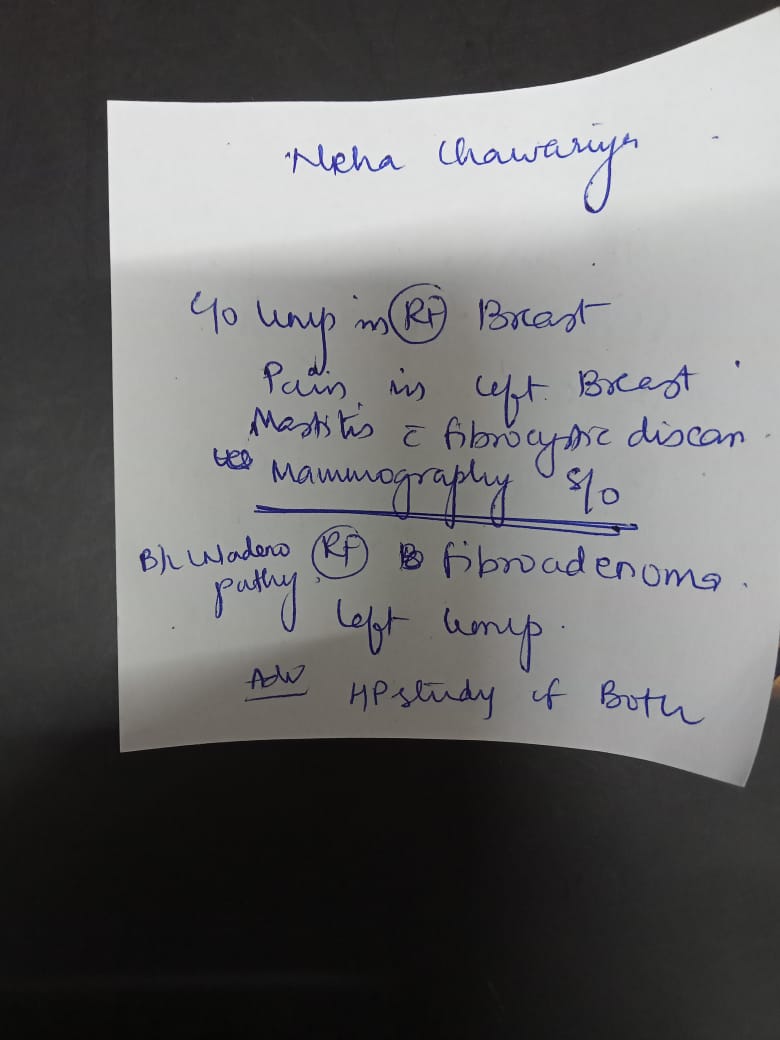 Neha Chawariya
c/o lump in RT Breast
Pain in left Breast
Mastitis c̄ fibrocystic disease
Mammography S/o
B/L ladeno RT fibroadenoma.
pathy.
left lump.
Adv HP study of Both